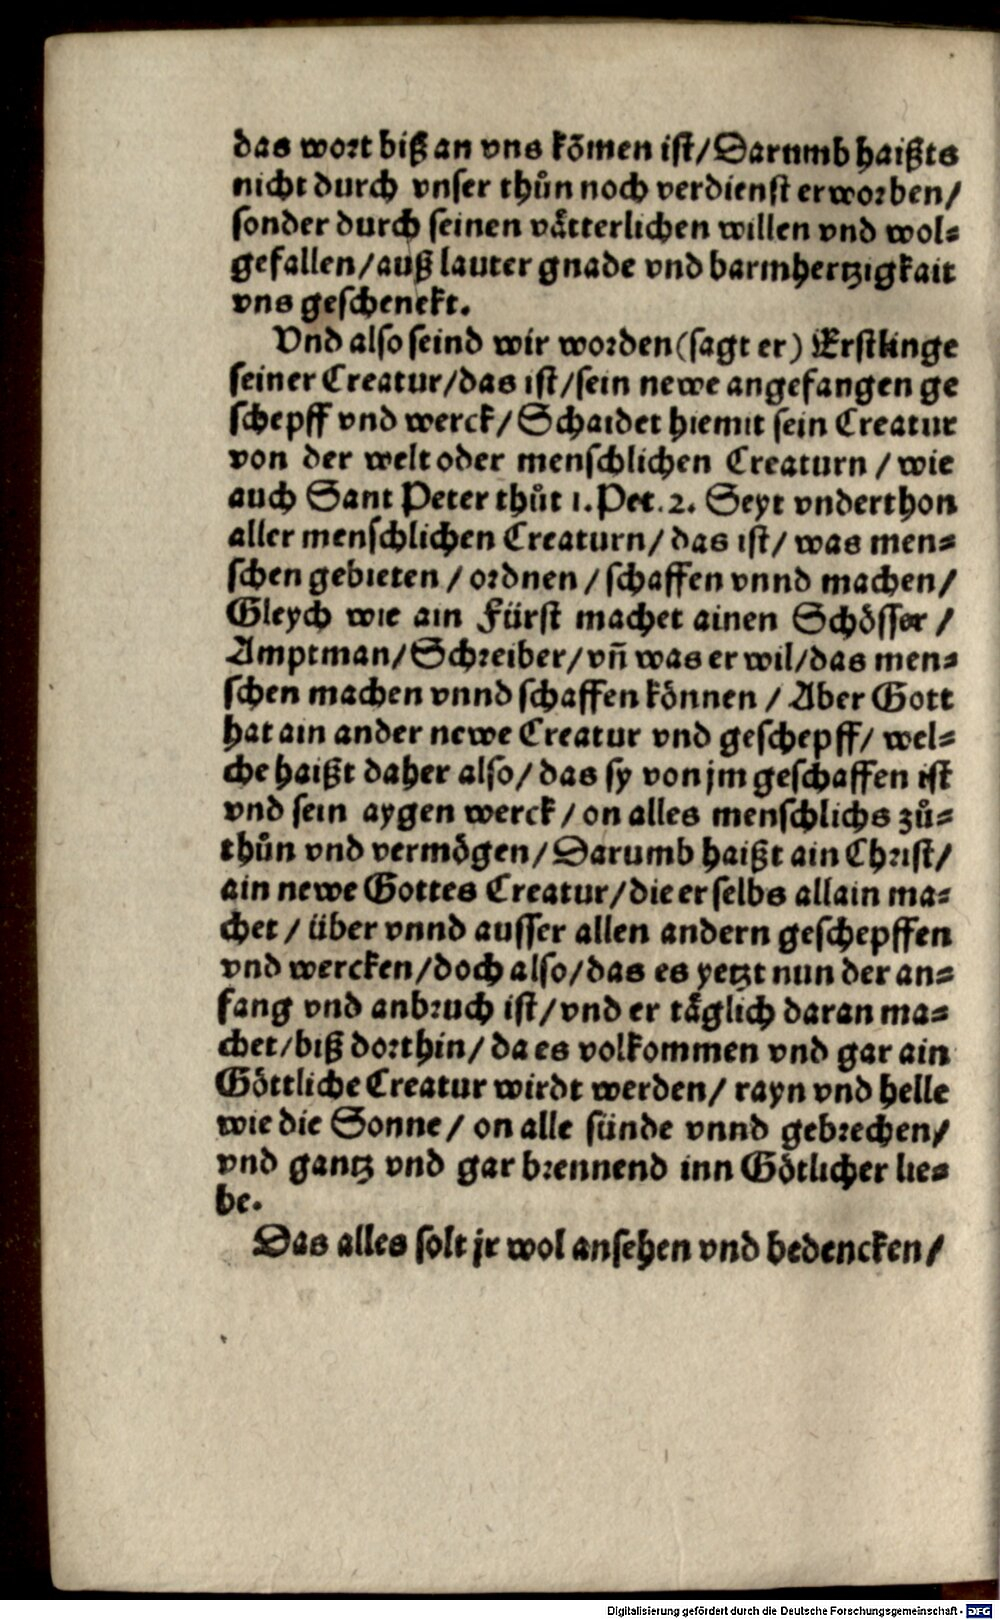 das wort biß an vns kõmen ist/Darumb haißts
nicht durch vnser thůn noch verdienst erworben/
sonder durch seinen vätterlichen willen vnd wol-
gefallen/auß lauter gnade vnd barmhertzigkait
vns geschenckt.
Vnd also seind wir worden (sagt er) Erstlinge
seiner Creatur/das ist/sein newe angefangen ge
schepff vnd werck/Schaidet hiemit sein Creatur
von der welt oder menschlichen Creaturn/wie
auch Sant Peter thůt 1. Pet. 2. Seyt vnderthon
aller menschlichen Creaturn/das ist/was men-
schen gebieten/ordnen/schaffen vnnd machen/
Gleych wie ain Fürst machet ainen Schösser/
Amptman/Schreiber/vñ was er wil/das men-
schen machen vnnd schaffen können/Aber Gott
hat ain ander newe Creatur vnd geschepff/wel-
che haißt daher also/das sy von jm geschaffen ist
vnd sein aygen werck/on alles menschlichs zů-
thůn vnd vermögen/Darumb haißt ain Christ/
ain newe Gottes Creatur/die er selbs allain ma-
chet/über vnnd ausser allen andern geschepffen
vnd wercken/doch also/das es yetzt nun der an-
fang vnd anbruch ist/vnd er täglich daran ma-
chet/biß dorthin/da es volkommen vnd gar ain
Göttliche Creatur wirdt werden/rayn vnd helle
wie die Sonne/on alle sünde vnnd gebrechen/
vnd gantz vnd gar brennend inn Götlicher lie-
be.
Das alles solt jr wol ansehen vnd bedencken/
Digitalisierung gefördert durch die Deutsche Forschungsgemeinschaft - DFG